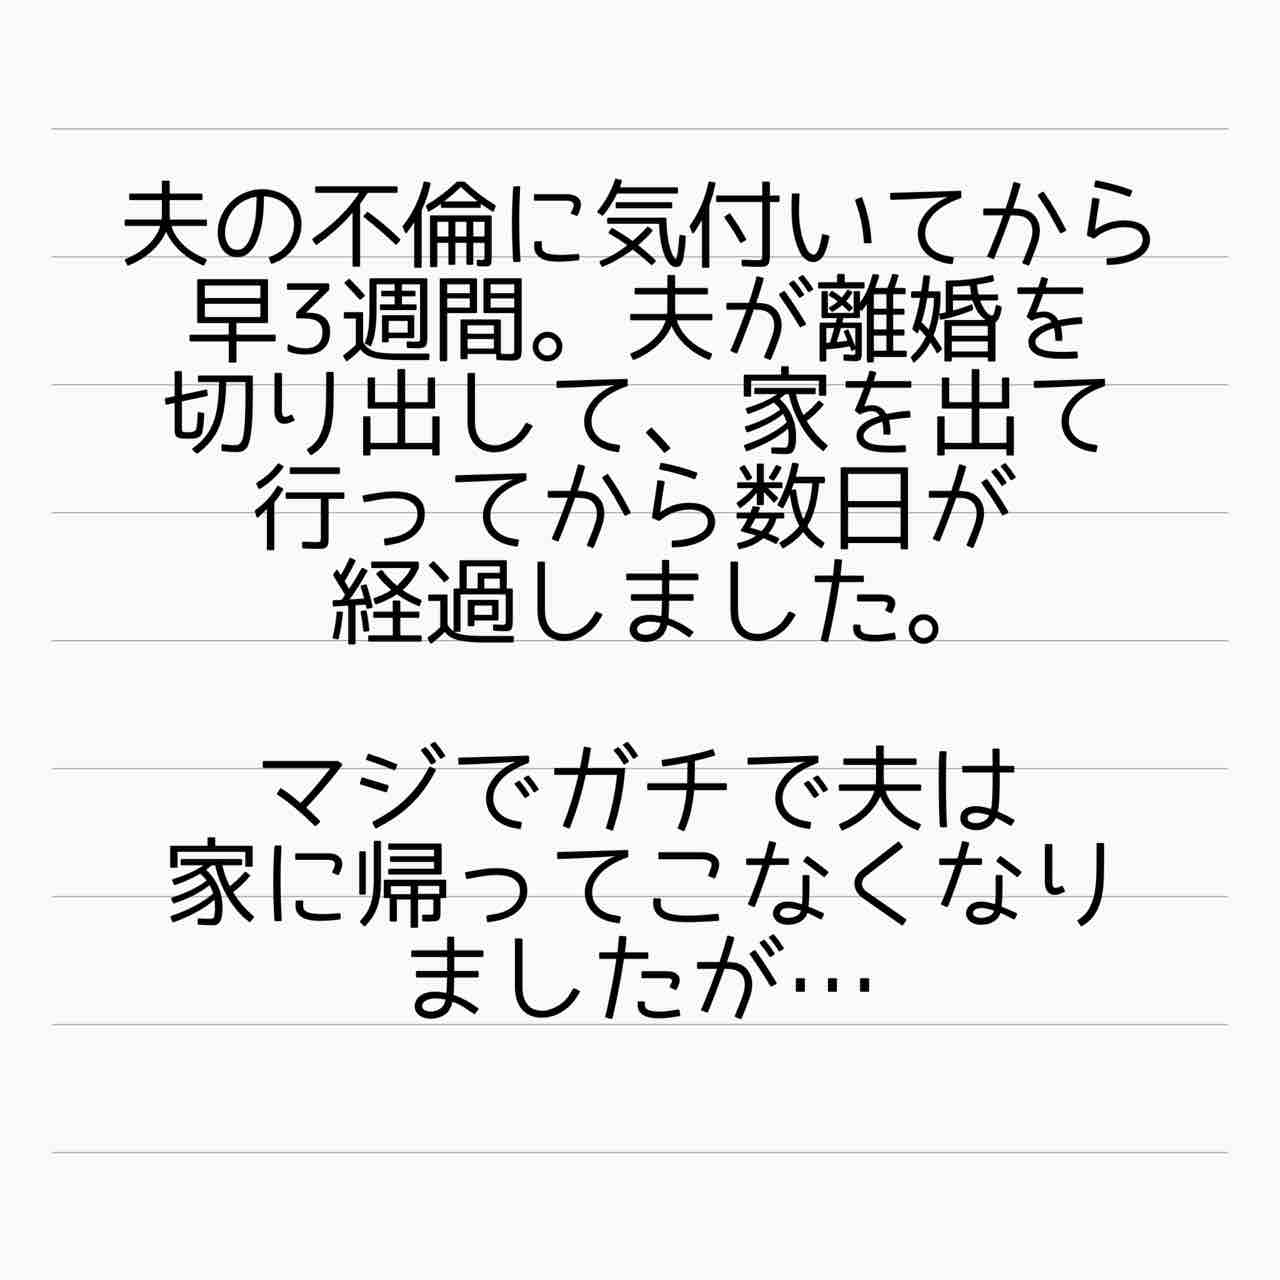 夫の不倫に気付いてから
早3週間。夫が離婚を
切り出して、家を出て
行ってから数日が
経過しました。
マジでガチで夫は
家に帰ってこなくなり
ましたが…